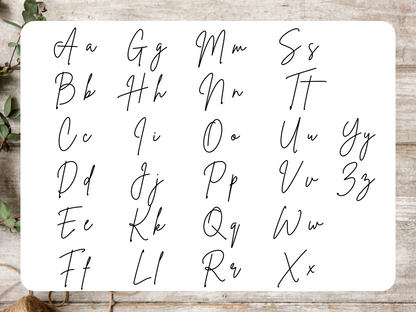 A a G g M m S s
B b H h N n T t
C c I i O o U u Y y
D d J j P p V v Z z
E e K k Q q W w
F f L l R r X x